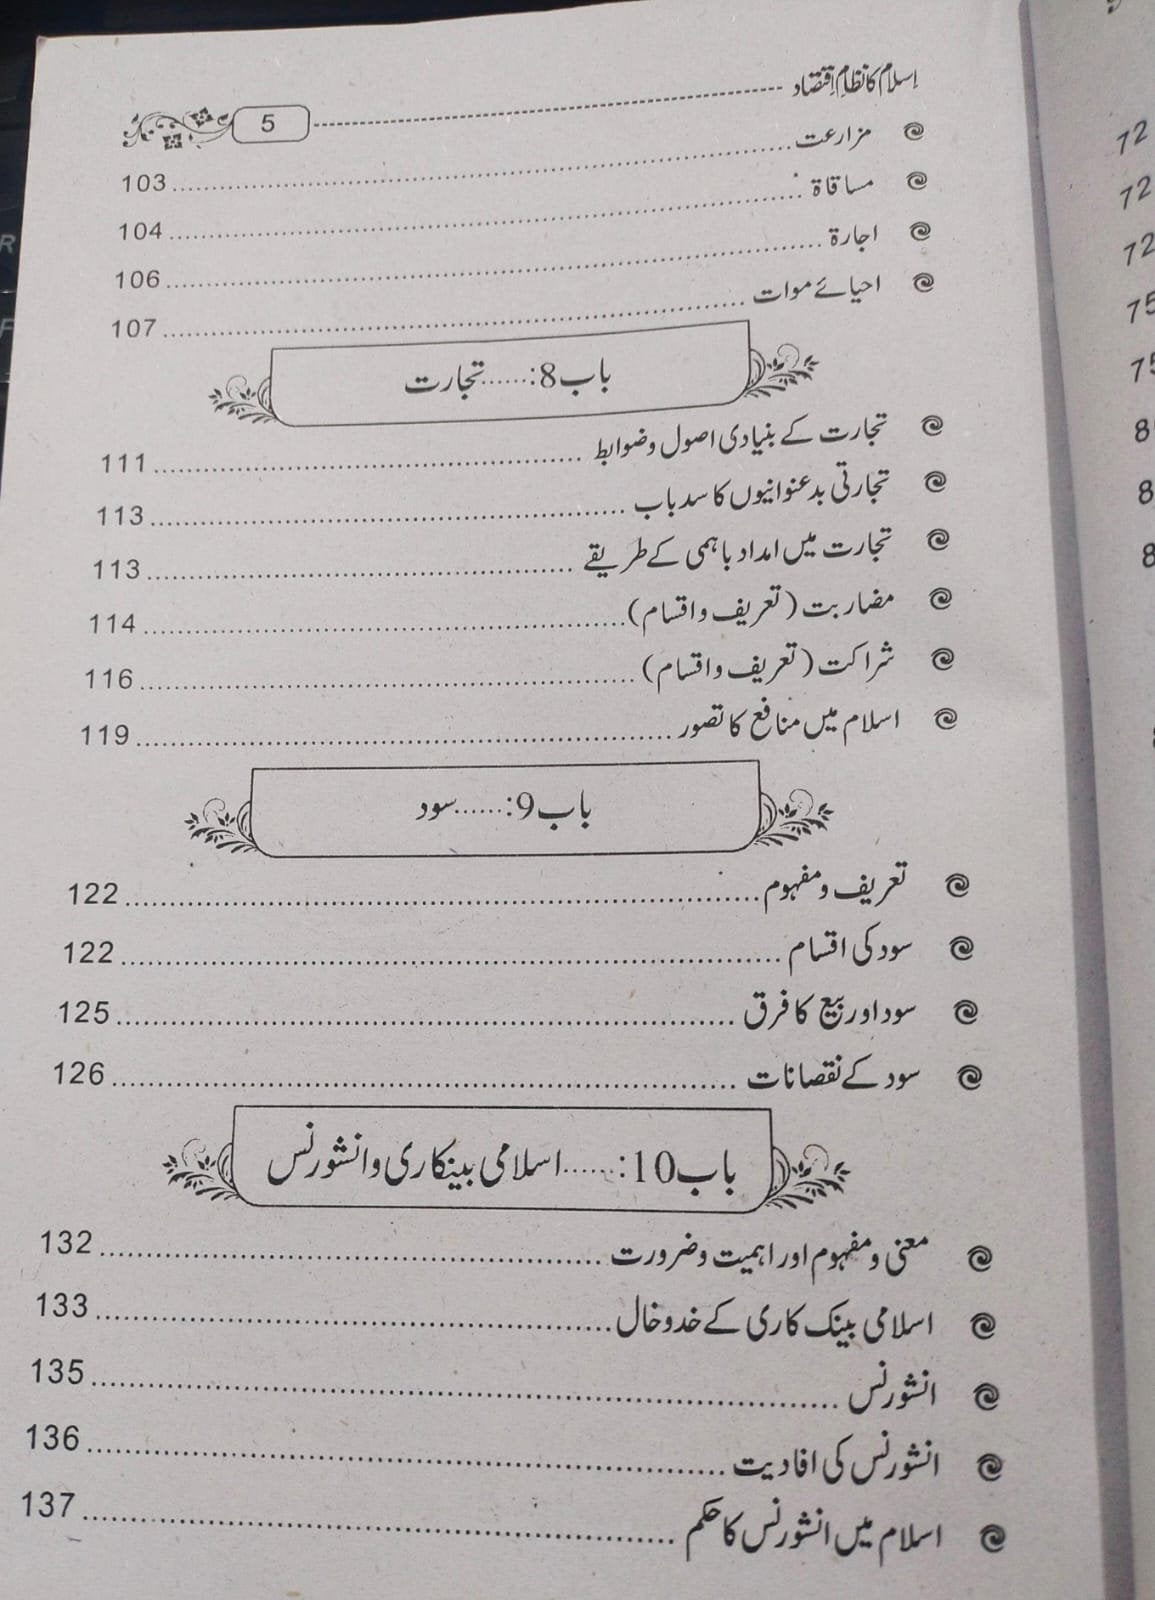 اسلام کا نظامِ اقتصاد 5
مزارعت 103
مساقاة 104
اجارة 106
احیائے موات 107
باب 8:......تجارت
تجارت کے بنیادی اصول وضوابط 111
تجارتی بدعنوانیوں کا سدباب 113
تجارت میں امداد باہمی کے طریقے 113
مضاربت (تعریف واقسام) 114
شراکت (تعریف واقسام) 116
اسلام میں منافع کا تصور 119
باب 9:......سود
تعریف ومفہوم 122
سود کی اقسام 122
سود اور بیع کا فرق 125
سود کے نقصانات 126
باب 10:......اسلامی بینکاری وانشورنس
معنی ومفہوم اور اہمیت وضرورت 132
اسلامی بینک کاری کے خدوخال 133
انشورنس 135
انشورنس کی افادیت 136
اسلام میں انشورنس کا حکم 137
72
72